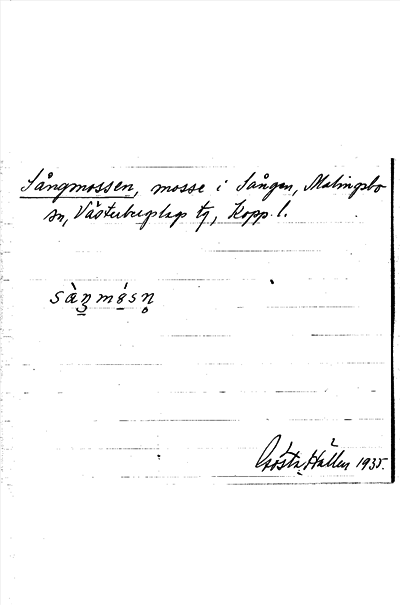 Sångmossen, mosse i Sången, Malingsbo
sn, Västerbergslags tg, Kopp. l.
Gösta Hallen 1935.